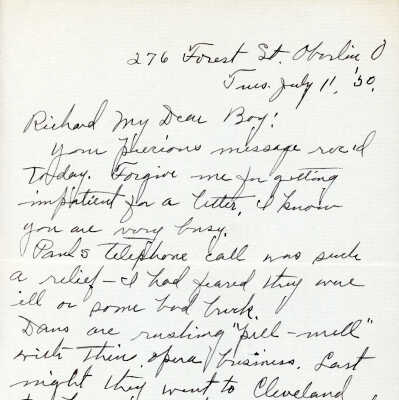 276 Forest St. Oberlin O
Tues. July 11, '50.
Richard My Dear Boy!
Your precious message rec'd
today. Forgive me for getting
impatient for a letter, I know
you are very busy.
Pauls telephone call was such
a relief - I had feared they were
ill or some bad luck.
Dans are rushing "pell-mell"
with their opera business. Last
night they went to Cleveland